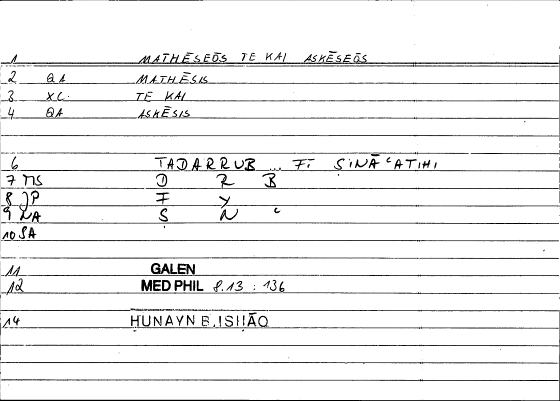 1 MATHĒSEŌS TE KAI ASKĒSEŌS
2 QA MATHĒSIS
3 XC TE KAI
4 QA ASKĒSIS
6 TADARRUB ... FĪ ṢINĀʿATIHI
7 MS D R B
8 JP F Y
9 NA Ṣ N ʿ
10 SA
11 GALEN
12 MED PHIL 8.13 : 136
14 ḤUNAYN B. ISḤĀQ